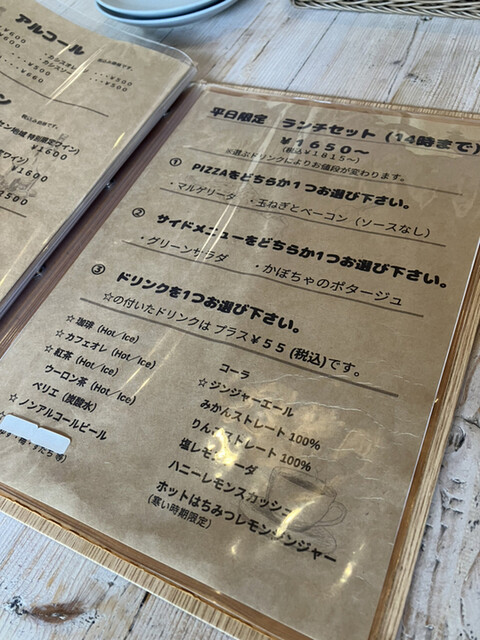 アルコール
税込み価格です。
¥600
カシスオレ
カシスソー
¥500
¥500
¥660
税込み価格です。
特別限定ワイン)
¥1600
¥1600
平日限定 ランチセット (14時まで)
¥1650〜
(税込¥1815〜)
※選ぶドリンクによりお値段が変わります。
① PIZZAをどちらか1つお選び下さい。
・マルゲリータ ・玉ねぎとベーコン(ソースなし)
② サイドメニューをどちらか1つお選び下さい。
・グリーンサラダ ・かぼちゃのポタージュ
③ ドリンクを1つお選び下さい。
☆の付いたドリンクは プラス¥55(税込)です。
☆珈琲 (Hot/Ice)
☆カフェオレ (Hot/Ice)
☆紅茶 (Hot/Ice)
ウーロン茶 (Hot/Ice)
ペリエ (炭酸水)
☆ノンアルコールビール
コーラ
☆ジンジャーエール
みかんストレート 100%
りんごストレート 100%
塩レモンソーダ
ハニーレモンスカッシュ
ホットはちみつレモンジンジャー
(寒い時期限定)